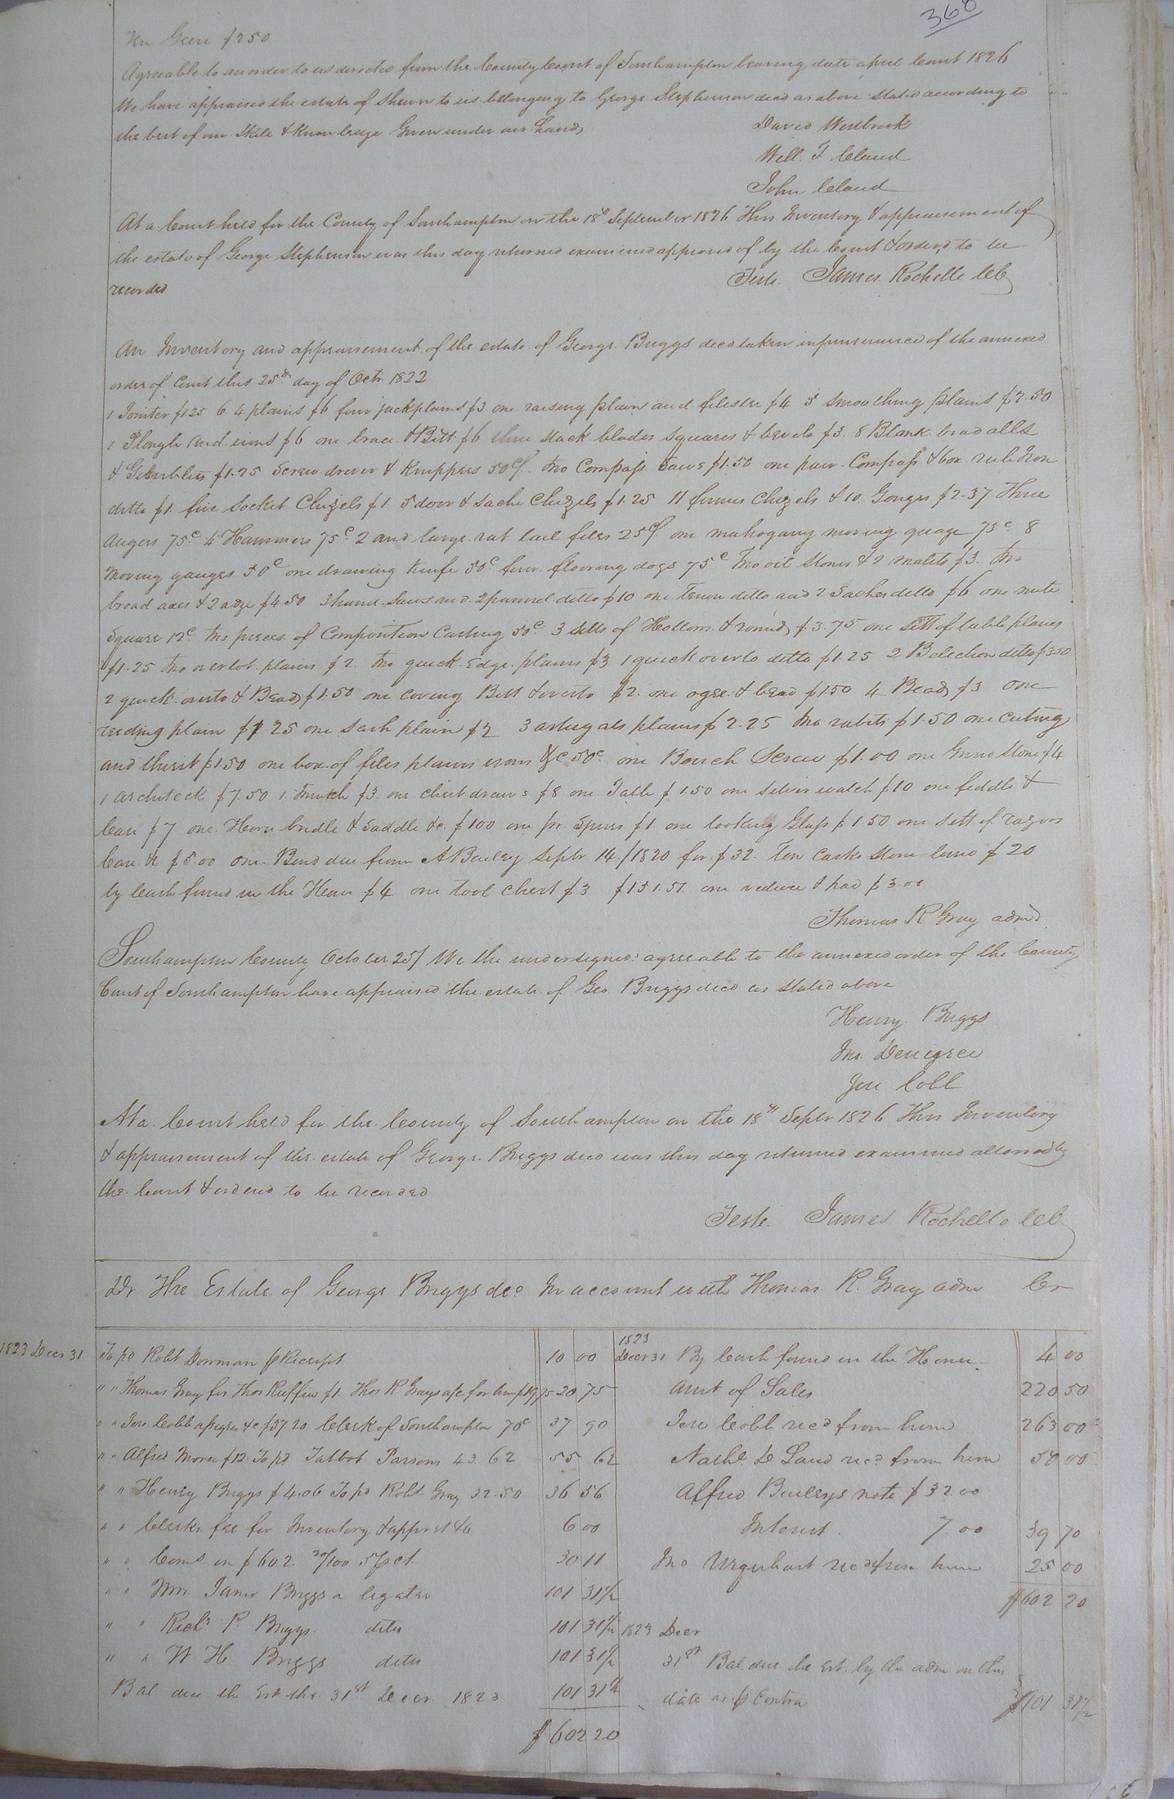 368
Ten Geese $2 50
Agreeable to an order to us directed from the County Court of Southampton bearing date april Court 1826
We have appraised the estate of Shewn to us belonging to George Stephenson decd as above stated according to
the best of our Skill & Knowledge Given under our hands
David Westbrook
Will. T Cleaud
John Cleaud
At a Court held for the County of Southampton on the 18th September 1826 This Inventory & appraisement of
the estate of George Stephenson was this day returned examined approved of by the Court & ordered to be
recorded
Teste. James Rochelle Clk
An Inventory and appraisement of the estate of George Briggs decd taken in pursuance of the annexed
order of Court this 25th day of Octr 1822
1 Jointer $1 25 6. 4 plains $6 four jack plains $3 one raising plain and filister $4 3 smoothing plains $2.50
1 Plough and irons $6 one brace & Bitt $6 three stock blades squares & bevels $3. 8 Blank brad alls
& Gimblets $1.25 Screw driver & Knippers 50cts two Compass Saws $1.50 one pair Compass & box rule Iron
ditto $1. five Socket Chizels $1 5 door & Sashe Chizels $1.25 11 firmer Chizels & 10 Gouges $2.37 Three
Augers 75c 4 Hammers 75c 2 and large rat tail files 25cts one mahogany moving guage 75c 8
Moving gauges 50c one drawing Knife 50c four flooring dogs 75c Two oil Stones & 2 malits $3. two
broad axes & 2 adze $4 50 3 hand Saws and 2 pannel ditto $10 one Tenon ditto and 2 Sashes ditto $6 one mite
Square 12c. two pieces of Composition Casting 50c 3 Setts of Hollows & rounds $3.75 one Sett of table planes
$1.25 two overlot plains $2 two quick Edge plains $3 1 quick overto ditto $1.25 2 Bolection ditto $3.50
2 quick overto & Bead $1.50 one coving Bitt & overto $2. one ogee & bead $1 50 4 Beads $3 one
reeding plain $1.25 one Sash plain $2 3 astragals plains $2.25 two rabits $1.50 one cutting
and thrist $1.50 one box of files plains irons &c 50c one Bench Screw $1.00 one Grind Stone $4
1 architeck $7.50 1 Trunk $3. one chest draws $8 one Table $1 50 one silver watch $10 one fiddle &
Case $7 one Horse bridle & Saddle &c. $100 one pr. Spurs $1 one looking Glass $1 50 one Sett of razors
Case & $5.00 One Bond due from A Bailey Septr 14/1820 for $32. Ten Casks Stone lime $20
by Cash found in the House $4 one tool chest $3 $151.51. one valice & pad $3.00
Thomas R Gray admr
Southampton County October 25/ We the undersigned agreeable to the annexed order of the County
Court of Southampton have appraised the estate of Geo. Briggs decd as stated above
Henry Briggs
Jno. Denegree
Jere Cobb
At a Court held for the County of Southampton on the 18th Septr 1826 This Inventory
& appraisement of the estate of George Briggs decd was this day returned examined allowed by
the Court & ordered to be recorded
Teste. James Rochelle Clk
Dr The Estate of George Briggs decd In account with Thomas R. Gray admr Cr
1823 Decr 31 To pd Robt Dorman p Receipt 10 00
" " Thomas Gray for Thos Ruffin $1. Thos R Grays a/c for 20 75
" " Jere Cobb &c $37 20 Clerk of Southampton 70c 37 90
" " Alfred Moore $12. To pd Talbot Parsons 43 62 55 62
" " Henry Briggs $4.06 To pd Robt. Gray 32.50 36 56
" " Clerks fee for Inventory & apprst &c 6 00
" " Coms on $602 20/100 5 pct 30 11
" " Wm. James Briggs a legatee 101 31½
" " Richd P Briggs ditto 101 31½
" " W H Briggs ditto 101 31½
Bal due the Est the 31st Decr. 1823 101 31½
$602 20
1823
Decr 31 By Cash found in the House. 4 00
Amt of Sales 220 50
Jere Cobb recd from him 263 00
Nathl D Land recd from him 50 00
Alfred Baileys note $32.00
Interest 7 00 39 70
Jno Urquhart recd from him 25 00
$602 20
1823 Decr
31st Bal due the Est. by the admr on this
date as p Contra $101 31½